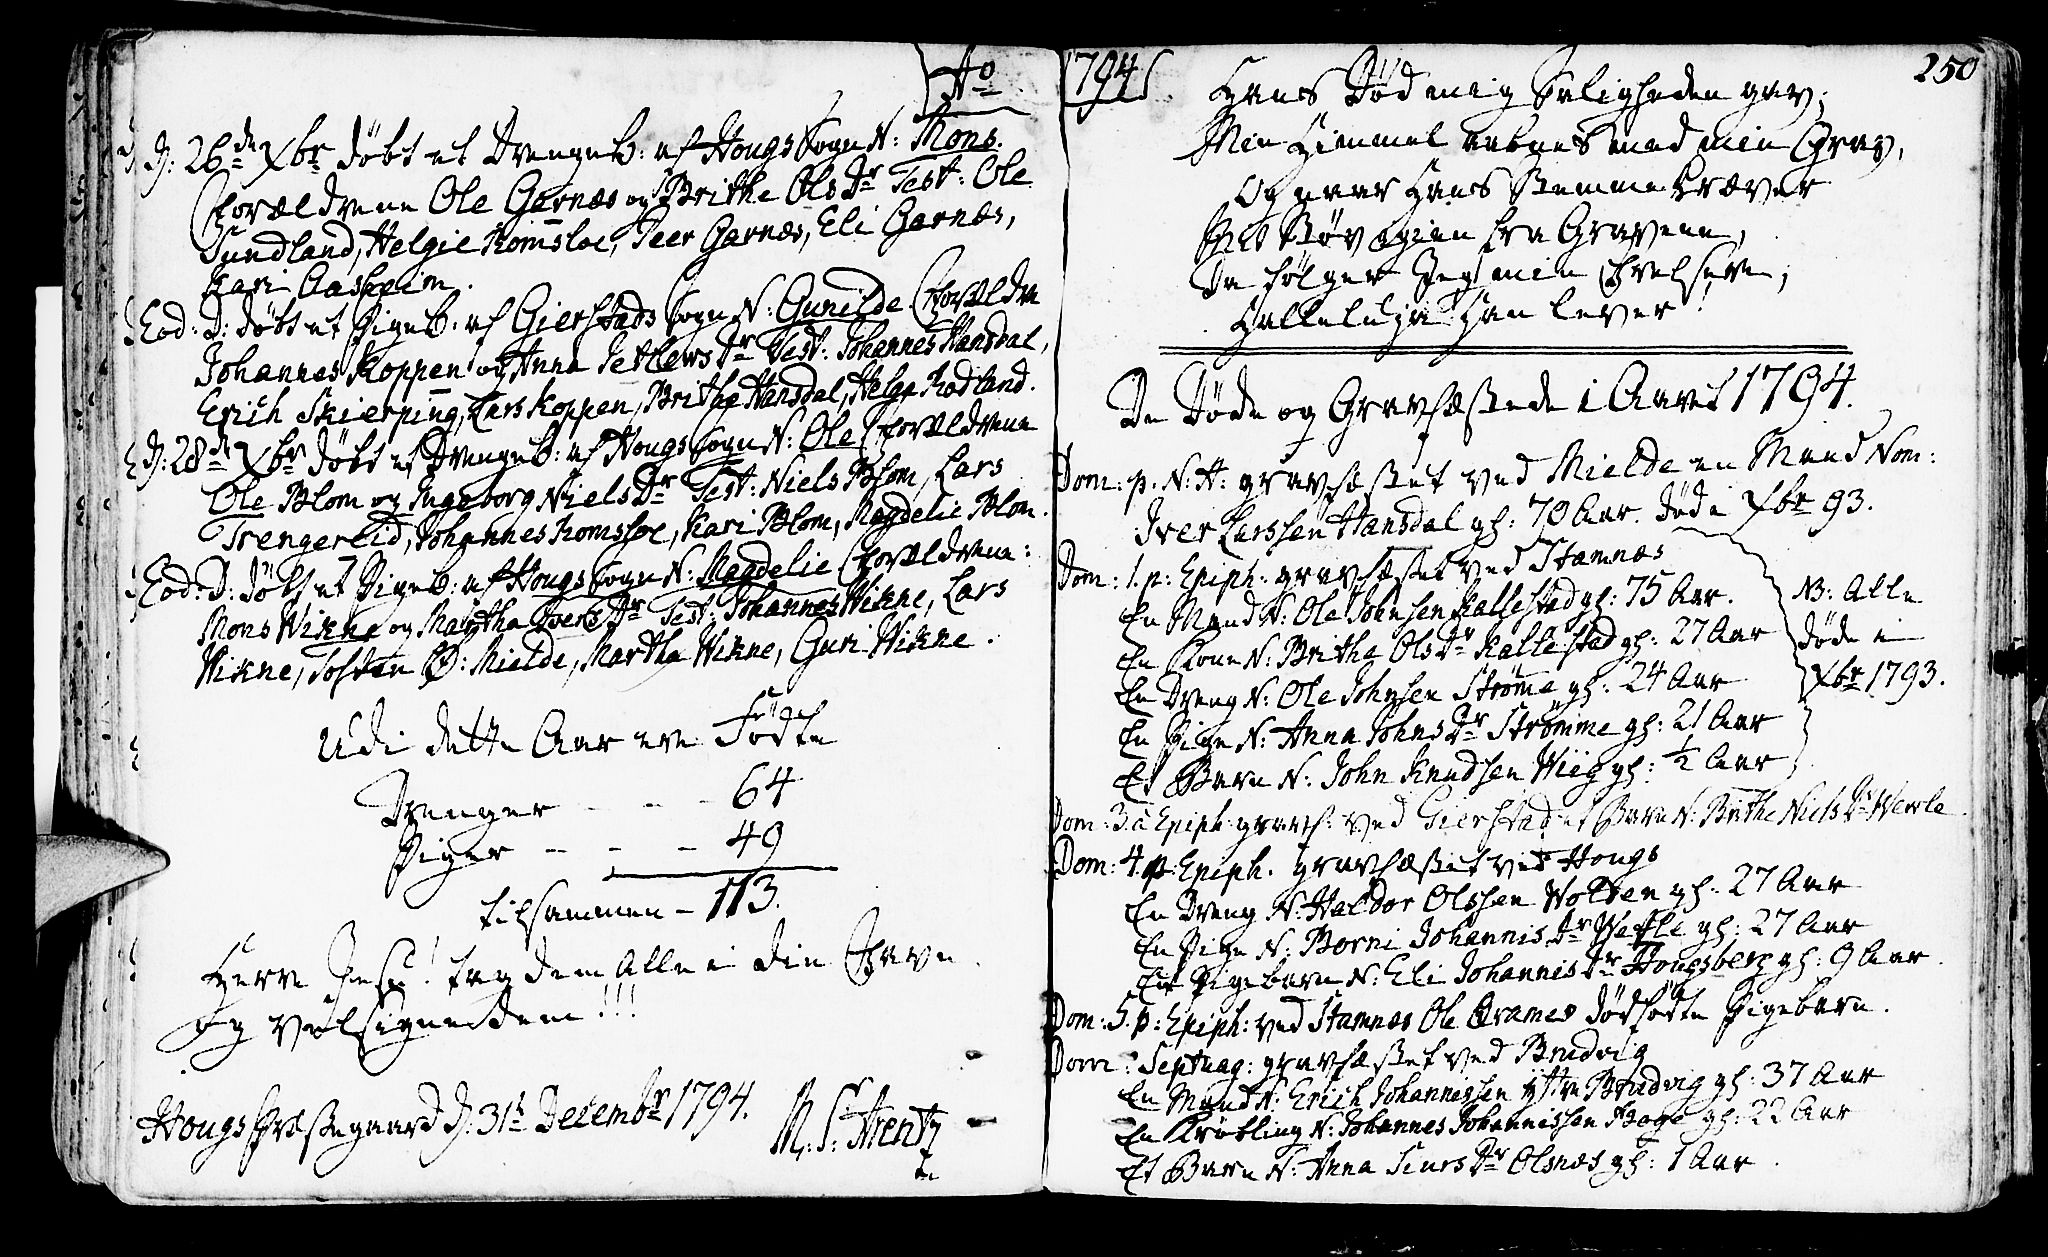 Ao 1794
250
D: 26de Xbr døbt et Drengeb: af Hougs Sogn N: Mons.
Forældrene Ole Garnæs og Brithe Ols Dr Test: Ole
Sundland, Helgie Romsloe, Peer Garnæs, Eli Garnæs,
Kari Aasheim.
Eod: D: døbt et Pigeb: af Gierstads Sogn N: Gunilde Forældre
Johannes Koppen og Anna Detlews Dr Test: Johannes Hansdal,
Erich Skierping, Lars Koppen, Brithe Hansdal, Helge Rodland.
D: 28de Xbr døbt et Drengeb: af Hougs Sogn N: Ole Forældrene
Ole Blom og Ingeborg Niels Dr Test: Niels Blom, Lars
Trengereid, Johannes Romsloe, Kari Blom, Magdelie Blom.
Eod: D: døbt et Pigeb: af Hougs Sogn N: Magdelie Forældrene:
Mons Wikne og Martha Ivers Dr Test: Johannes Wikne, Lars
Wikne, Tosten Ø: Mielde, Martha Wikne, Guri Wikne.
Udi dette Aar ere Fødte
Drenger - - - 64
Piger - - - 49
tilsammen - 113.
Herre Jesu! tag dem Alle i din Favn
og velsigne dem!!!
Hougs Præstegaard D: 31te Decembr 1794.
M: S: Arentz
Hans Død mig Saligheden gav;
Min Himmel aabnes med min Grav,
Og naar Hans Stemme kræver
Mit Støv igien fra Gravene,
Da følger Jeg min Frelsere,
Halleluja! Han lever!
De Døde og Gravfæstede i Aaret 1794.
Dom: p. N: A: gravfæstet ved Mielde en Mand Nom:
Iver Larssen Hansdal gl: 70 Aar. død i Xbr 93.
Dom: 1. p: Epiph: gravfæstet ved Stamnæs
En Mand N: Ole Johnsen Kallestad gl: 75 Aar.
En Kone N: Britha Ols Dr Kallestad gl: 27 Aar
En Dreng N: Ole Johnsen Strøme gl: 24 Aar
En Pige N: Anna Johns Dr Strømme gl: 21 Aar
Et Barn N: John Knudsen Wiig gl: 1/2 Aar
NB: Alle
døde i
Xbr 1793.
Dom: 3. a Epiph: gravf: ved Gierstad et Barn N: Brithe Niels Dr Werle
Dom: 4. p: Epiph. gravfæstet ved Hougs
En Dreng N: Haldor Olssen Wolden gl: 27 Aar
En Pige N: Borni Johannis Dr Wetle gl: 27 Aar
Et Pigebarn N: Eli Johannis Dr Hougsberg gl: 9 Aar.
Dom: 5. p: Epiph: ved Stamnæs Ole Øvames dødfødte Pigebarn.
Dom: Septuag: gravfæstet ved Brudvig
En Mand N: Erich Johannissen ytre Brudvig gl: 37 Aar
En Krøbling N: Johannes Johannissen Hage gl: 22 Aar
Et Barn N: Anna Siurs Dr Olsnæs gl: 1 Aar.